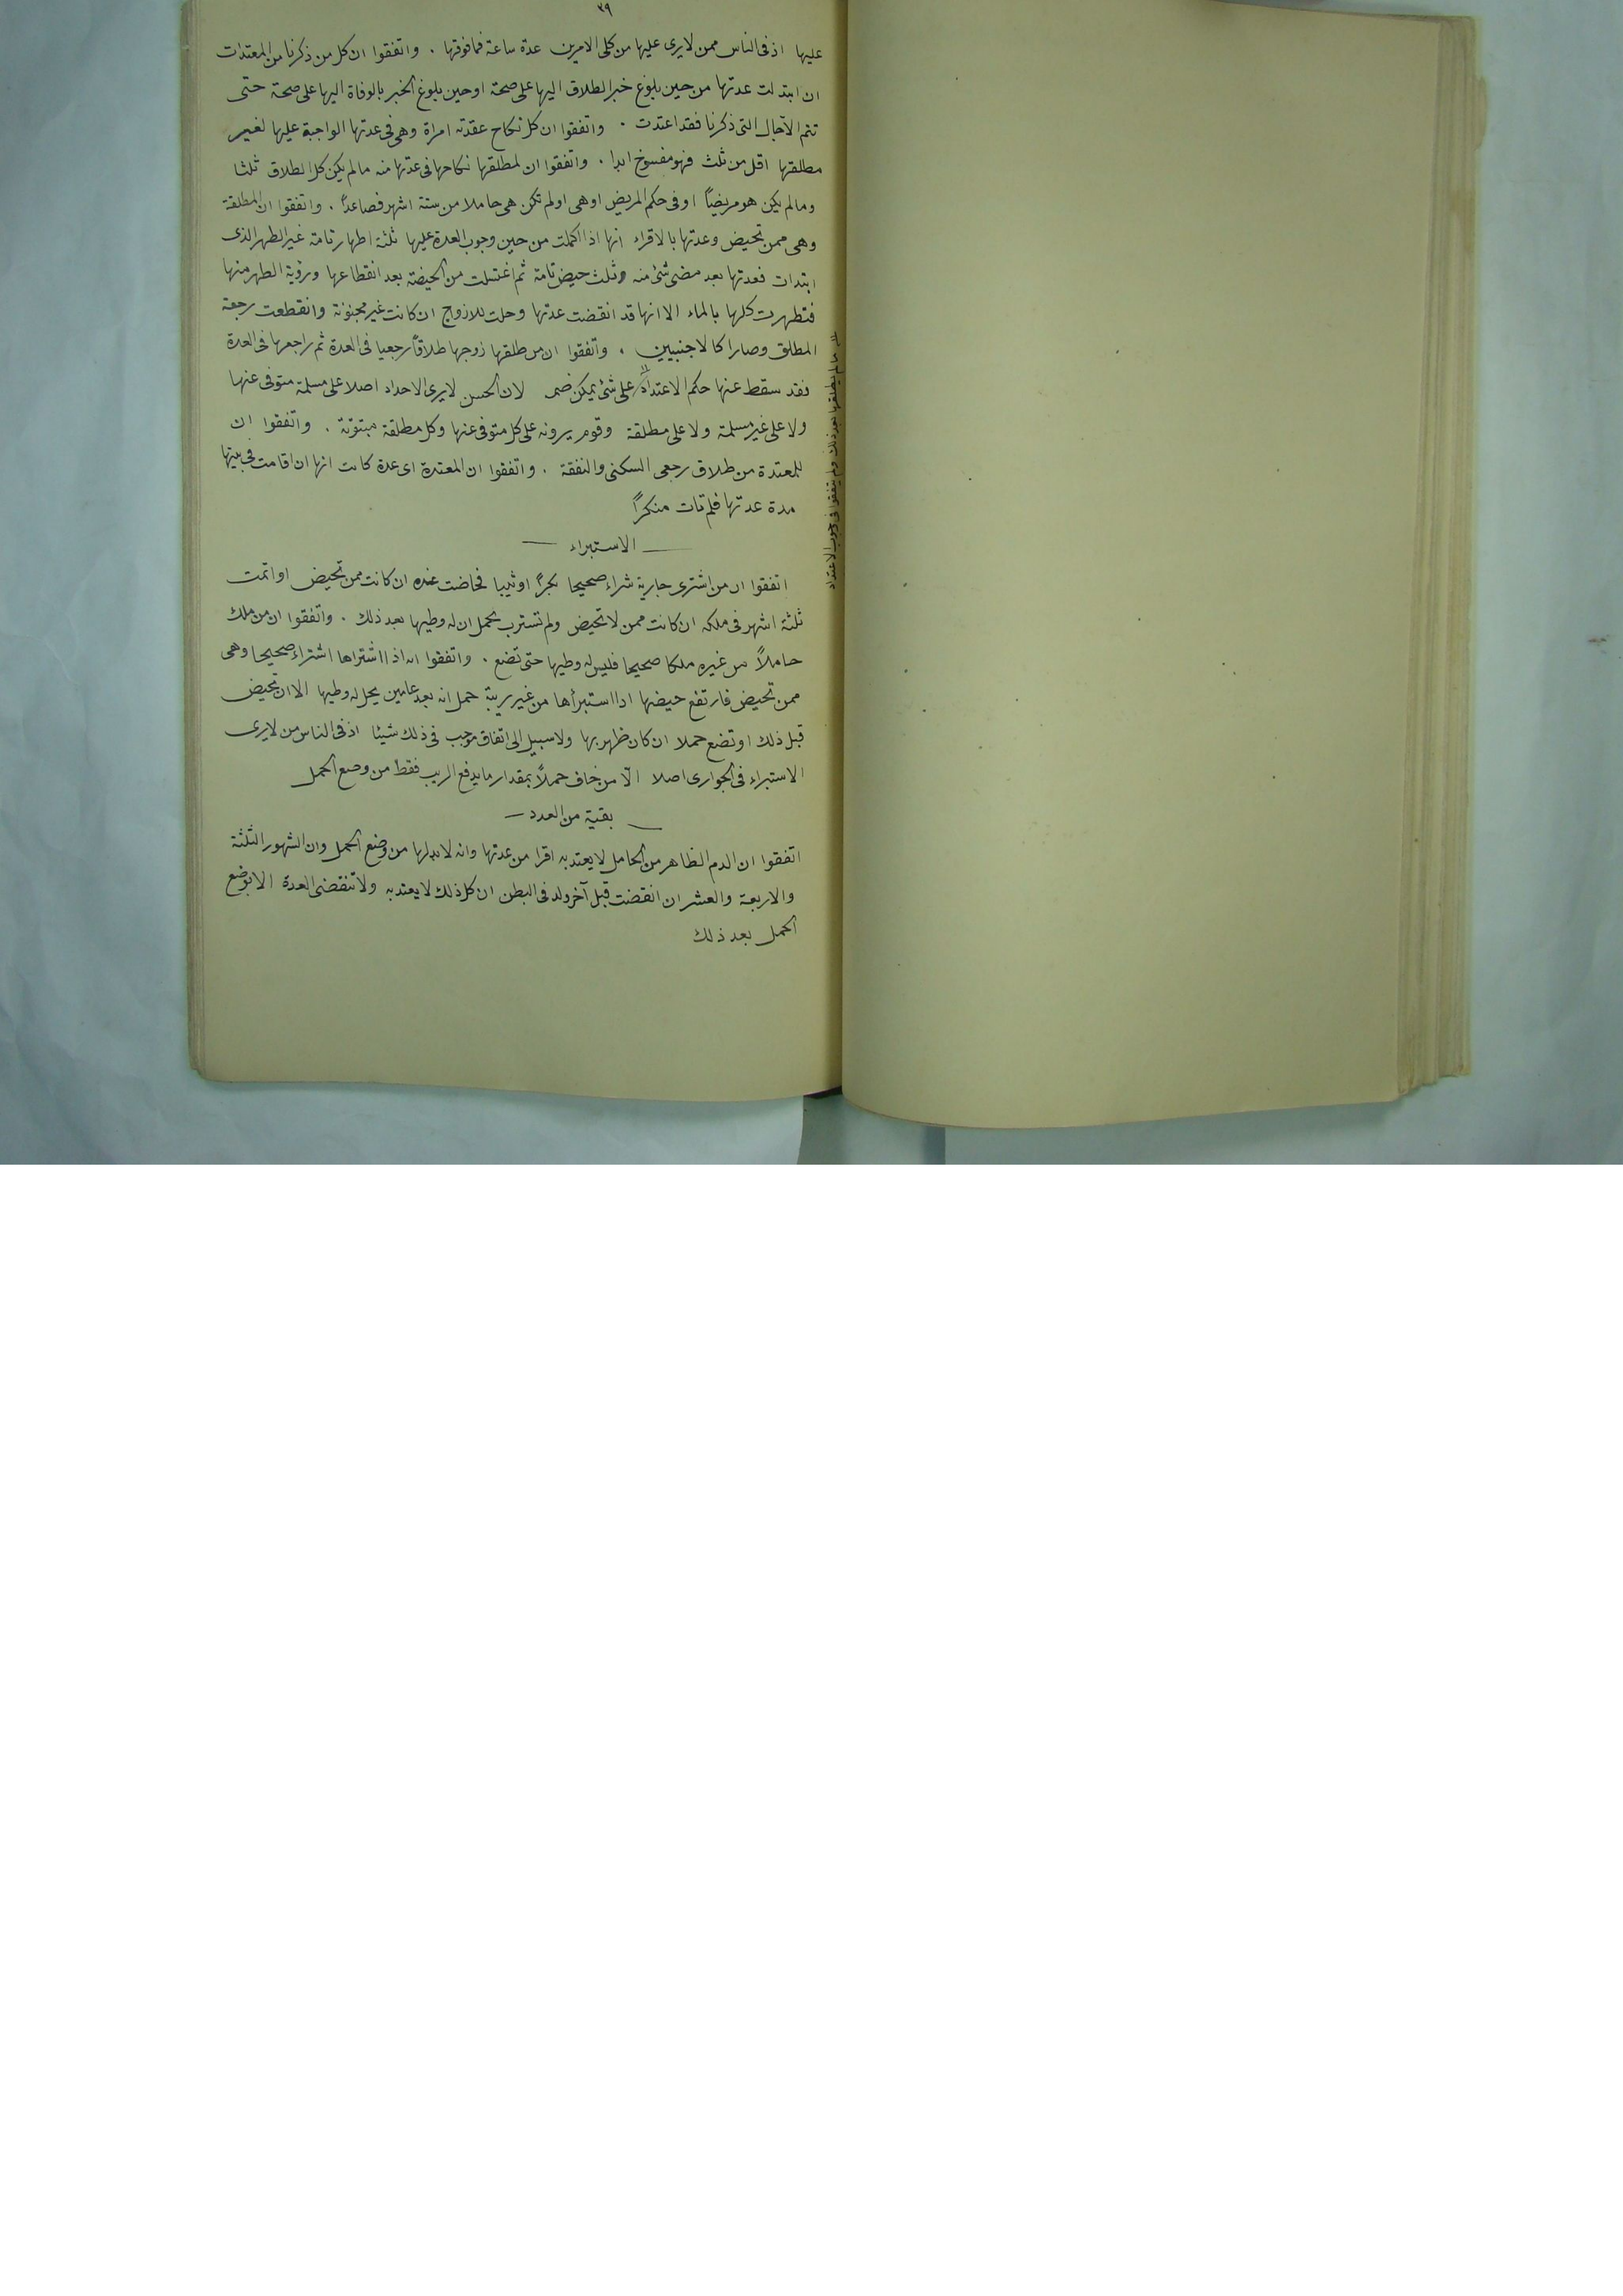 ٣٩
عليها اذ فى الناس ممن لا يرى عليها من كلى الامرين عدة ساعة فما فوقها . واتفقوا ان كل من ذكرنا من المعتدات
ان ابتدات عدتها من حين بلوغ خبر الطلاق اليها على صحة او حين بلوغ الخبر بالوفاة اليها على صحة حتى
تتم الآجال التى ذكرنا فقد اعتدت . واتفقوا ان كل نكاح عقدته امراة وهى فى عدتها الواجبة عليها لغير
مطلقها اقل من ثلث فهو مفسوخ ابدا . واتفقوا ان لمطلقها نكاحها فى عدتها منه ما لم يكن كل الطلاق ثلثا
وما لم يكن هو مريضاً او فى حكم المريض او هى او لم تكن هى حاملا من ستة اشهر فصاعداً . واتفقوا ان المطلقة
وهى ممن تحيض وعدتها بالاقراء انها اذا اكملت من حين وجوب العدة عليها ثلثة اطهار تامة غير الطهر الذى
ابتدات فعدتها بعد مضى شئ منه وثلث حيض تامة ثم اغتسلت من الحيضة بعد انقطاعها ورؤية الطهر منها
فتطهرت كلها بالماء الا انها قد انقضت عدتها وحلت للازواج ان كانت غير مجنونة وانقطعت رجعة
المطلق وصارا كالاجنبيين . واتفقوا ان من طلقها زوجها طلاقاً رجعيا فى العدة ثم راجعها فى العدة
فقد سقط عنها حكم الاعتداد على شئ يمكن ضم لان الحسن لا يرى الاحداد اصلا على مسلمة متوفى عنها
ولا على غير مسلمة ولا على مطلقة وقوم يرونه على كل متوفى عنها وكل مطلقة مبتوتة . واتفقوا ان
للمعتدة من طلاق رجعى السكنى والنفقة . واتفقوا ان المعتدة اى عدة كانت انها ان اقامت فى بيتها
مدة عدتها فلم تات منكراً
الاستبراء
اتفقوا ان من اشترى جارية شراء صحيحا بكراً او ثيبا فحاضت عنده ان كانت ممن تحيض او اتمت
ثلثة اشهر فى ملكه ان كانت ممن لا تحيض ولم تسترب بحمل ان له وطيها بعد ذلك . واتفقوا ان من ملك
حاملاً من غيره ملكا صحيحا فليس له وطيها حتى تضع . واتفقوا انه اذا اشتراها اشتراء صحيحا وهى
ممن تحيض فارتفع حيضها اذا استبرأها من غير ريبة حمل انه بعد عامين يحل له وطيها الا ان تحيض
قبل ذلك او تضع حملا ان كان ظهر بها ولا سبيل الى اتفاق موجب فى ذلك شيئا اذ فى الناس من لا يرى
الاستبراء فى الجوارى اصلا الّا من خاف حملاً بمقدار ما يدفع الريب فقط من وضع الحمل
بقية من العدد
اتفقوا ان الدم الظاهر من الحامل لا يعتد به اقرا من عدتها وانه لا بد لها من وضع الحمل وان الشهور الثلثة
والاربعة والعشر ان انقضت قبل آخر ولد فى البطن ان كل ذلك لا يعتد به ولا تنقضى العدة الا بوضع
الحمل بعد ذلك
ما لم يطلقها بعد ذلك ولم يتفقوا فى وجوب الاعتداد